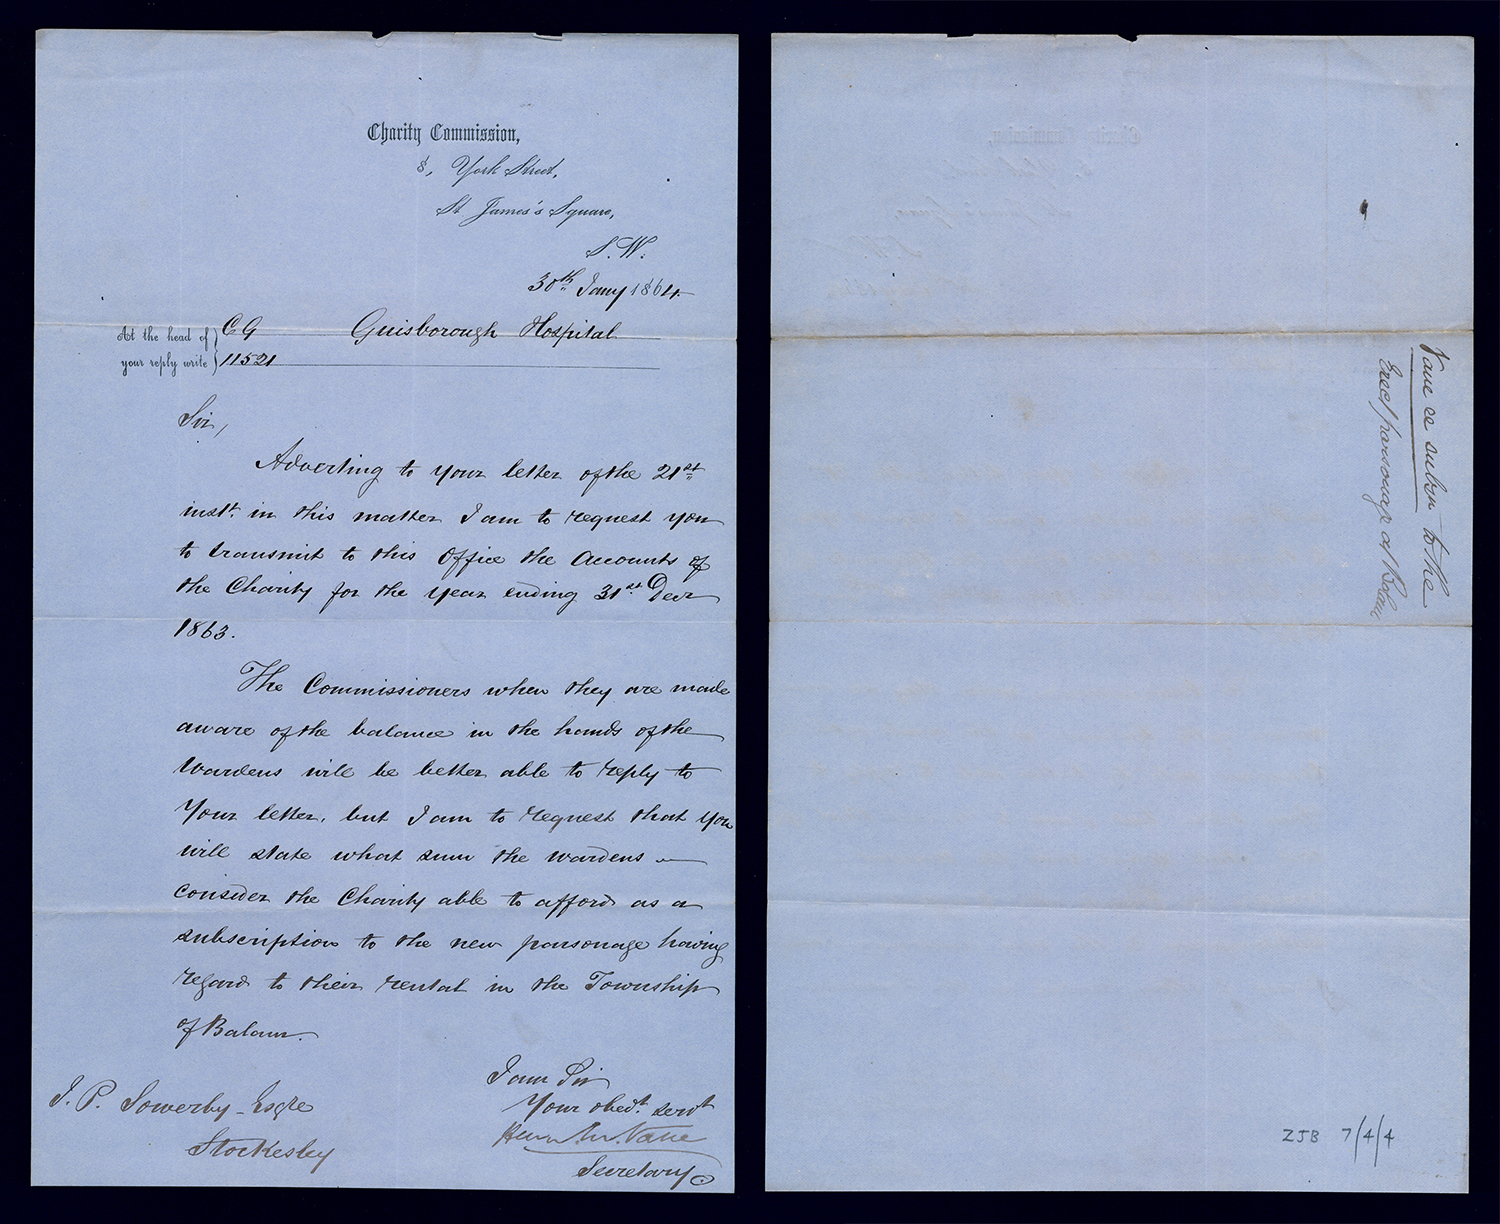 Charity Commission,
8, York Street,
St James's Square,
S.W.
30th Jany 1864
At the head of
your reply write
C G Guisborough Hospital
11521
Sir,
Adverting to your letter of the 21st
inst. in this matter I am to request you
to transmit to this Office the Accounts of
the Charity for the year ending 31st Decr
1863.
The Commissioners when they are made
aware of the balance in the hands of the
Wardens will be better able to reply to
Your letter, but I am to request that you
will state what sum the wardens
consider the Charity able to afford as a
subscription to the new parsonage having
regard to their rental in the Township
of Balam.
I am Sir
Your obedt. servt
Henry M. Vane
Secretary
J. P. Sowerby Esqre
Stokesley
Vane as subsn to the
Erect parsonage at
ZJB 7/4/4